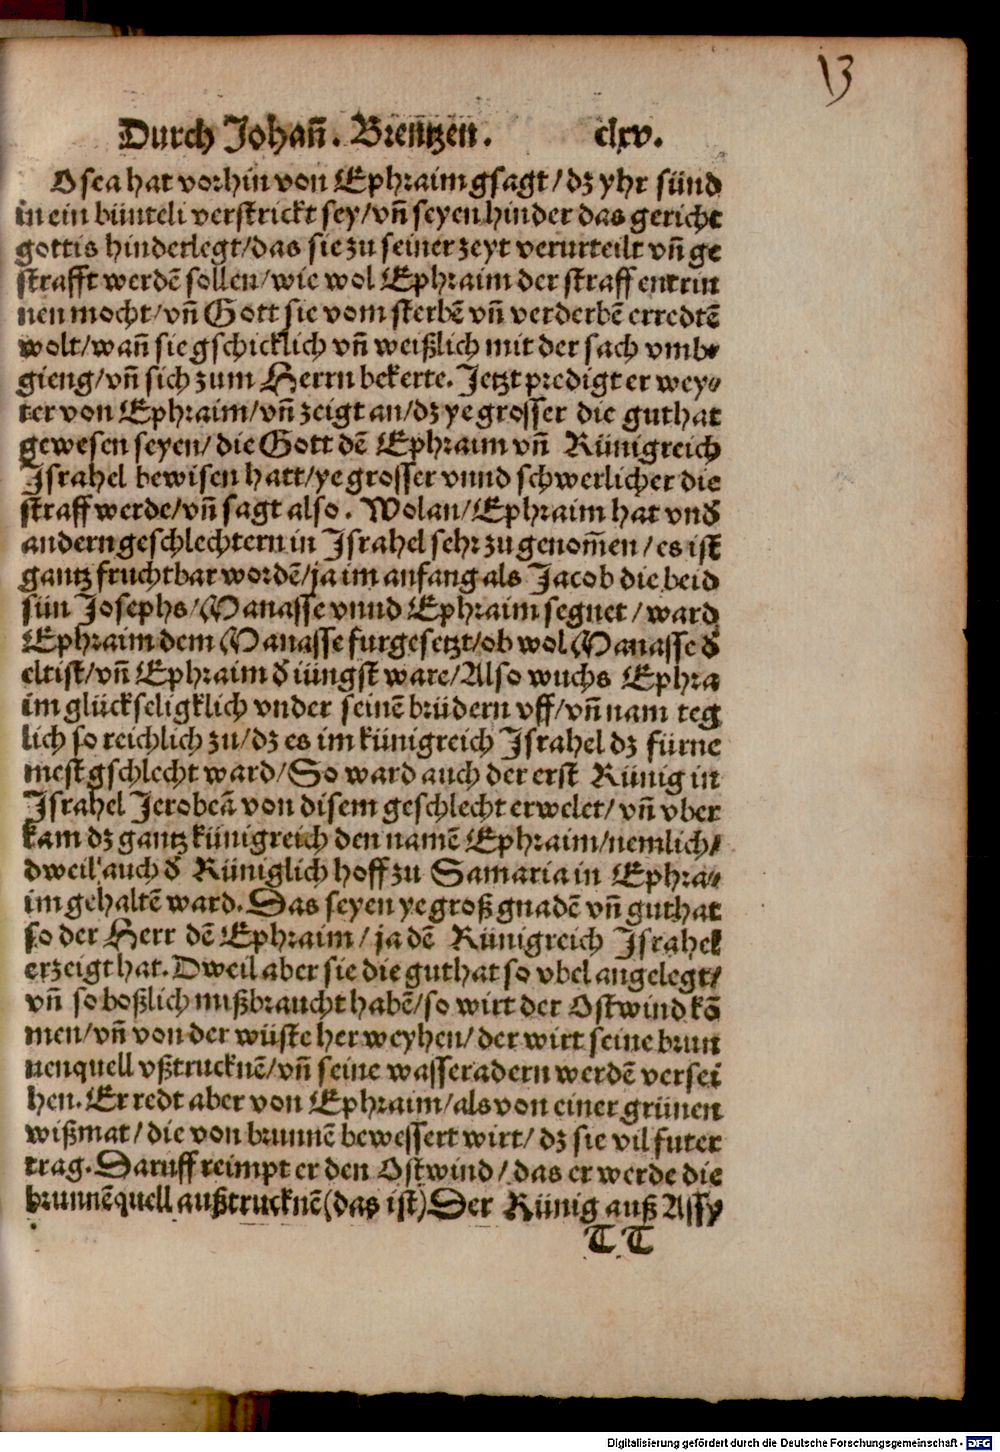 13
Durch Johan̄. Brentzen. clxv.
Osea hat vorhin von Ephraim gsagt/dz yhr sünd
in ein bünteli verstrickt sey/vn̄ seyen hinder das gericht
gottis hinderlegt/das sie zu seiner zeyt verurteilt vn̄ ge
strafft werdē sollen/wie wol Ephraim der straff entrin
nen mocht/vn̄ Gott sie vom sterbē vn̄ verderbē erredtē
wolt/wan̄ sie gschicklich vn̄ weißlich mit der sach vmb⸗
gieng/vn̄ sich zum Herrn bekerte. Jetzt predigt er wey⸗
ter von Ephraim/vn̄ zeigt an/dz ye grosser die guthat
gewesen seyen/die Gott dē Ephraim vn̄ Künigreich
Israhel bewisen hatt/ye grosser vnnd schwerlicher die
straff werde/vn̄ sagt also. Wolan/Ephraim hat vnd̕
andern geschlechtern in Israhel sehr zu genom̄en/es ist
gantz fruchtbar wordē/ja im anfang als Jacob die beid
sün Josephs/Manasse vnnd Ephraim segnet/ward
Ephraim dem Manasse furgesetzt/ob wol Manasse d̕
eltist/vn̄ Ephraim d̕ iüngst ware/Also wuchs Ephra
im glückseligklich vnder seinē brüdern vff/vn̄ nam teg
lich so reichlich zu/dz es im künigreich Israhel dz fürne
mest gschlecht ward/So ward auch der erst Künig in
Israhel Jerobeā von disem geschlecht erwelet/vn̄ vber
kam dz gantz künigreich den namē Ephraim/nemlich⸗
dweil auch d̕ Küniglich hoff zu Samaria in Ephra⸗
im gehaltē ward. Das seyen ye groß gnadē vn̄ guthat
so der Herr dē Ephraim/ja dē Künigreich Israhel
erzeigt hat. Dweil aber sie die guthat so vbel angelegt/
vn̄ so boßlich mißbraucht habē/so wirt der Ostwind kō
men/vn̄ von der wüste her weyhen/der wirt seine brun
nenquell vßtrucknē/vn̄ seine wasseradern werdē versei
hen. Er redt aber von Ephraim/als von einer grünen
wißmat/die von brunnē bewessert wirt/dz sie vil futer
trag. Daruff reimpt er den Ostwind/das er werde die
brunnēquell außtrucknē(das ist) Der Künig auß Assy
TT
Digitalisierung gefördert durch die Deutsche Forschungsgemeinschaft - DFG